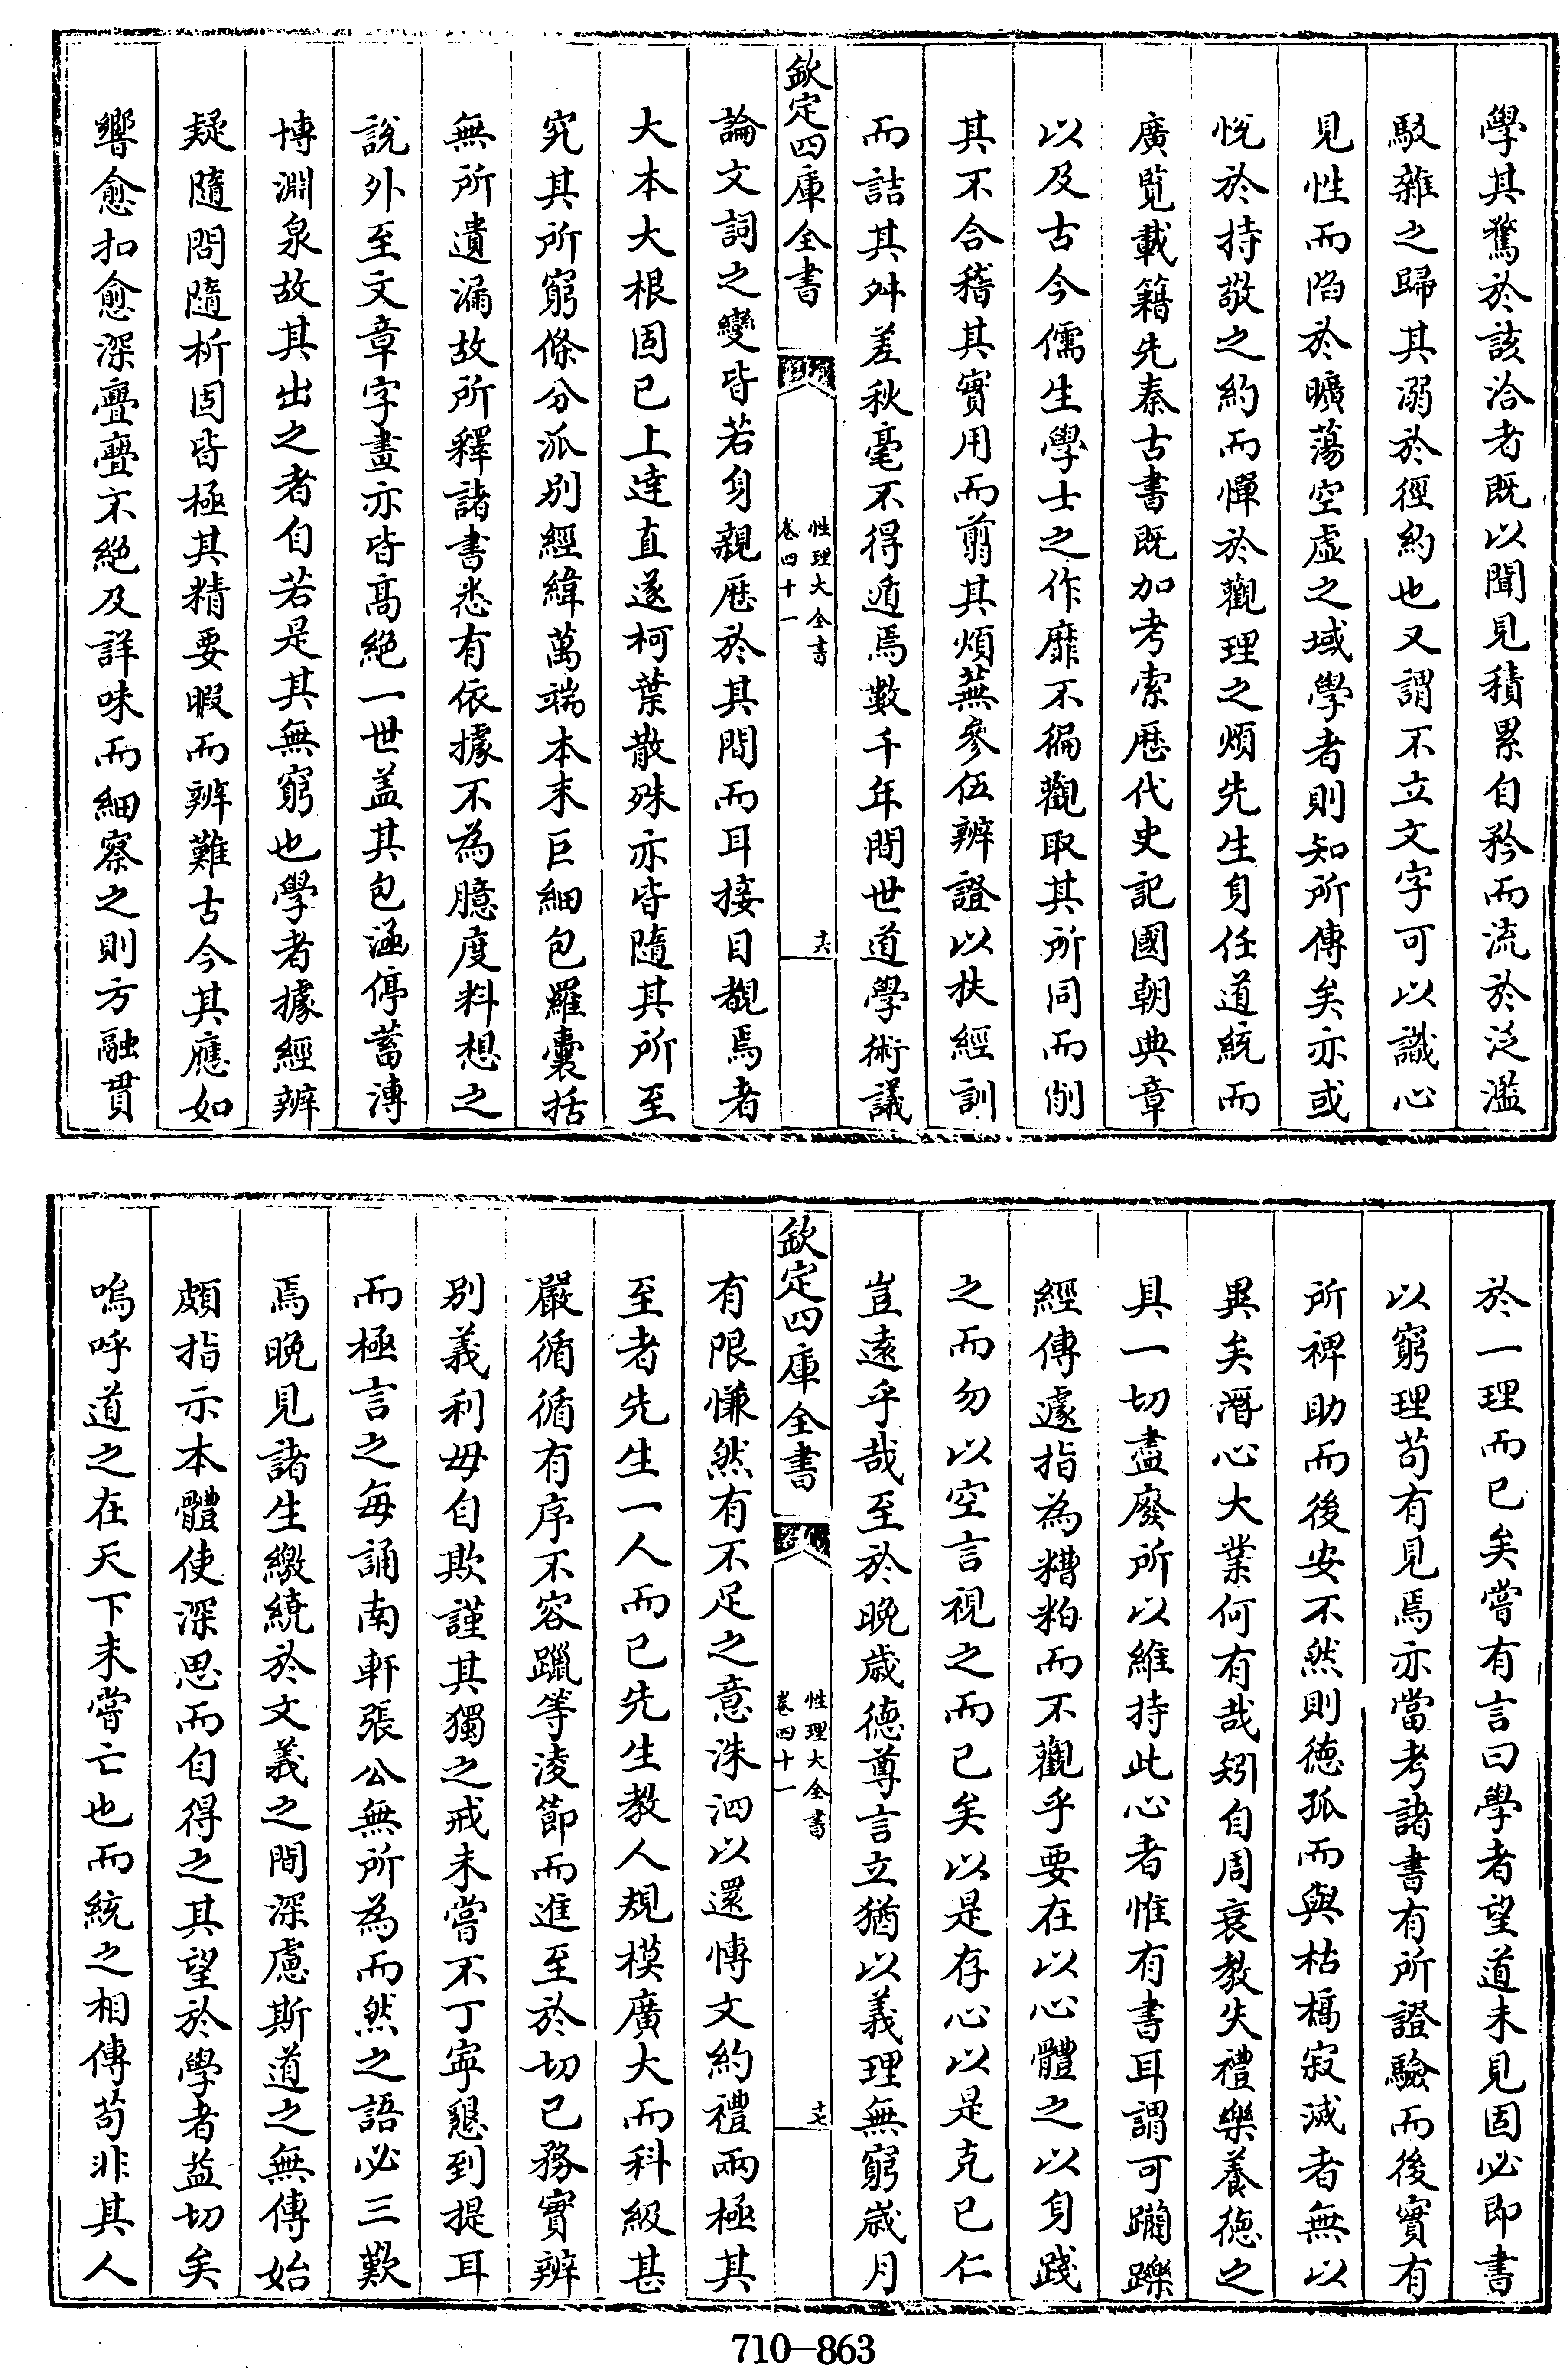 學其騖於該洽者既以聞見積累自矜而流於泛濫
駁雜之歸其溺於徑約也又謂不立文字可以識心
見性而陷於曠蕩空虛之域學者則知所傳矣亦或
悅於持敬之約而憚於觀理之煩先生身任道統而
廣覧載籍先秦古書既加考索歴代史記國朝典章
以及古今儒生學士之作靡不徧觀取其所同而削
其不合稽其實用而翦其煩蕪參伍辨證以扶經訓
而詰其舛差秋毫不得遁焉數千年間世道學術議
欽定四庫全書
性理大全書
卷四十一
十六
論文詞之變皆若身親歴於其間而耳接目覩焉者
大本大根固已上達直遂柯葉散殊亦皆隨其所至
究其所窮條分派别經緯萬端本末巨細包羅囊括
無所遺漏故所釋諸書悉有依據不為臆度料想之
說外至文章字畫亦皆高絶一世盖其包涵停蓄溥
博淵泉故其出之者自若是其無窮也學者據經辨
疑隨問隨析固皆極其精要暇而辨難古今其應如
響愈扣愈深亹亹不絶及詳味而細察之則方融貫
於一理而已矣嘗有言曰學者望道未見固必即書
以窮理苟有見焉亦當考諸書有所證驗而後實有
所裨助而後安不然則徳孤而與枯槁寂滅者無以
異矣潛心大業何有哉矧自周衰教失禮樂養徳之
具一切盡廢所以維持此心者惟有書耳謂可躪躒
經傳遽指為糟粕而不觀乎要在以心體之以身踐
之而勿以空言視之而已矣以是存心以是克已仁
豈遠乎哉至於晚歳徳尊言立猶以義理無窮歳月
欽定四庫全書
性理大全書
卷四十一
十七
有限慊然有不足之意洙泗以還博文約禮兩極其
至者先生一人而已先生教人規模廣大而科級甚
嚴循循有序不容躐等淩節而進至於切已務實辨
别義利毋自欺謹其獨之戒未嘗不丁寧懇到提耳
而極言之每誦南軒張公無所為而然之語必三歎
焉晚見諸生繳繞於文義之間深慮斯道之無傳始
頗指示本體使深思而自得之其望於學者益切矣
嗚呼道之在天下未嘗亡也而統之相傳苟非其人
710-863